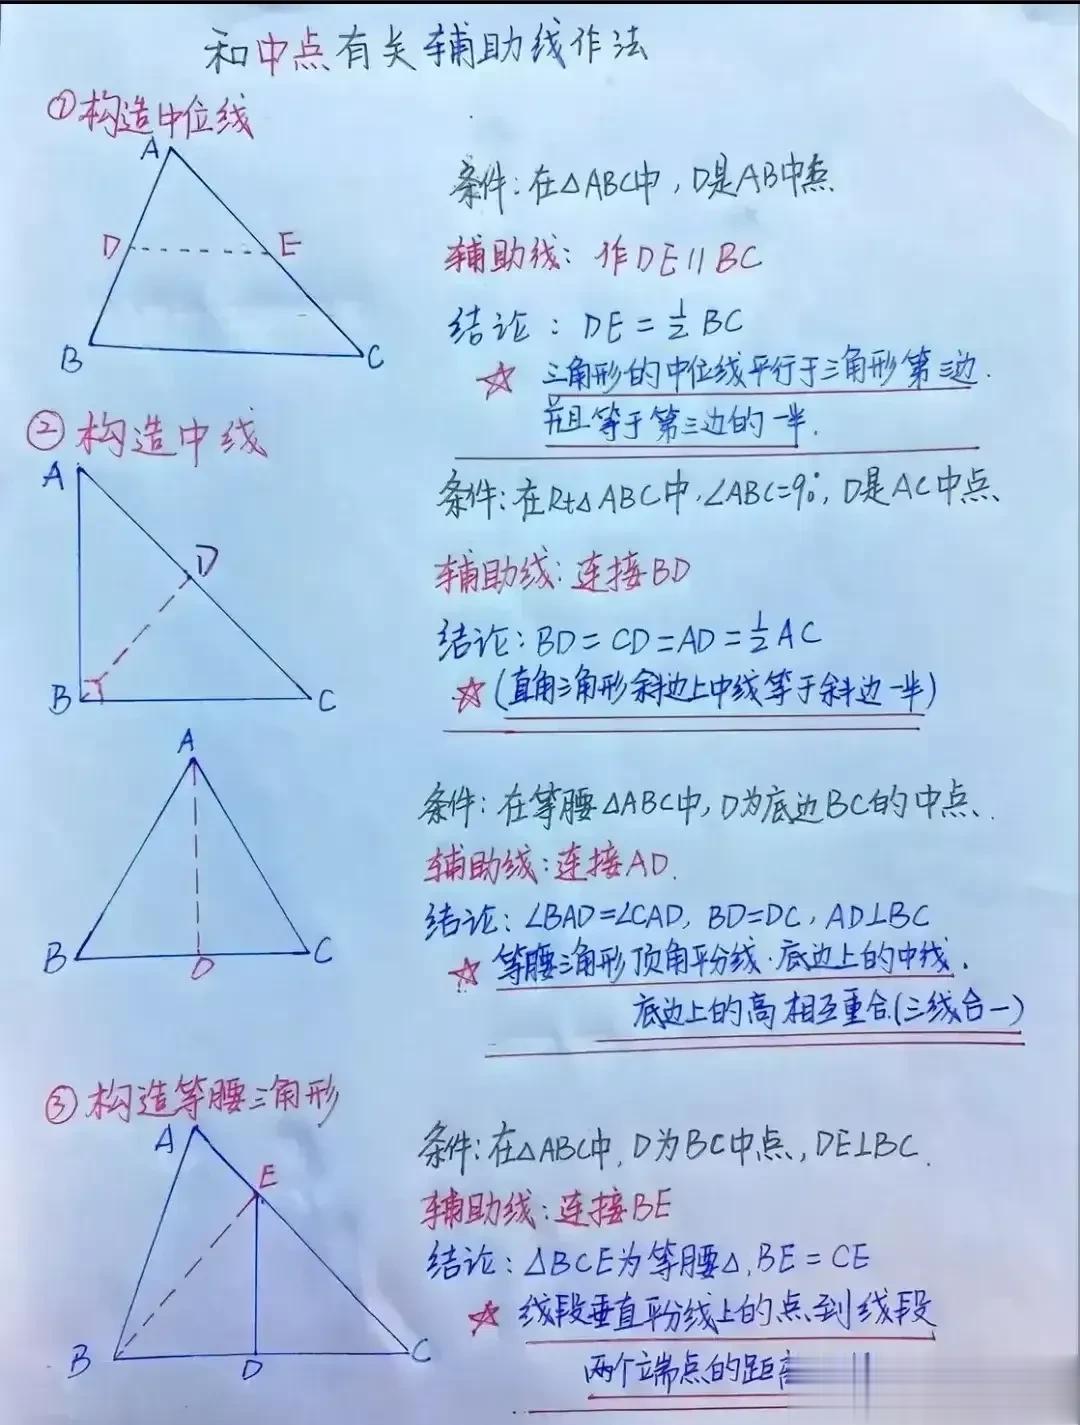 和中点有关辅助线作法
①构造中位线
A
D
E
B
C
条件:在△ABC中,D是AB中点.
辅助线:作DE∥BC
结论:DE=½BC
☆ 三角形的中位线平行于三角形第三边.
并且等于第三边的一半.
②构造中线
A
D
B
C
条件:在Rt△ABC中,∠ABC=90°,D是AC中点.
辅助线:连接BD
结论:BD=CD=AD=½AC
☆(直角三角形斜边上中线等于斜边一半)
A
B
D
C
条件:在等腰△ABC中,D为底边BC的中点.
辅助线:连接AD.
结论:∠BAD=∠CAD, BD=DC, AD⊥BC
☆ 等腰三角形顶角平分线.底边上的中线.
底边上的高相互重合(三线合一)
③构造等腰三角形
A
E
B
D
C
条件:在△ABC中,D为BC中点,DE⊥BC.
辅助线:连接BE
结论:△BCE为等腰△,BE=CE
☆ 线段垂直平分线上的点到线段
两个端点的距